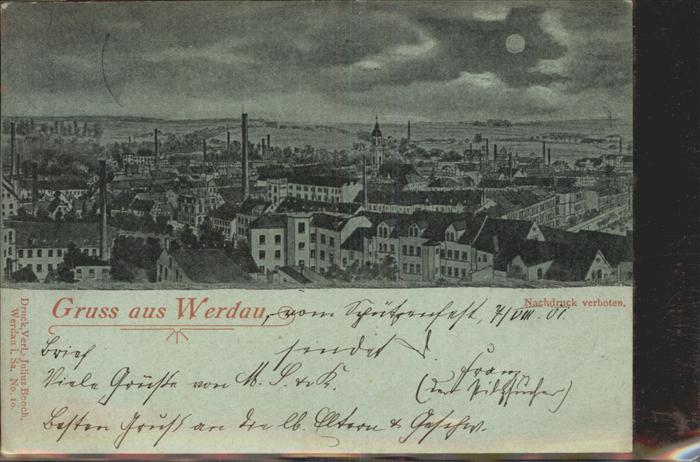 Gruss aus Werdau, vom Schützenfest, 7/VIII. 01.
Nachdruck verboten.
sendet
Brief
Franz
Viele Grüße von M. S. & K.
(der Pilzsucher)
Besten Gruß an die lb. Eltern & Geschw.
Druck, Verl. Julius Booch,
Werdau i. Sa. No. 10.